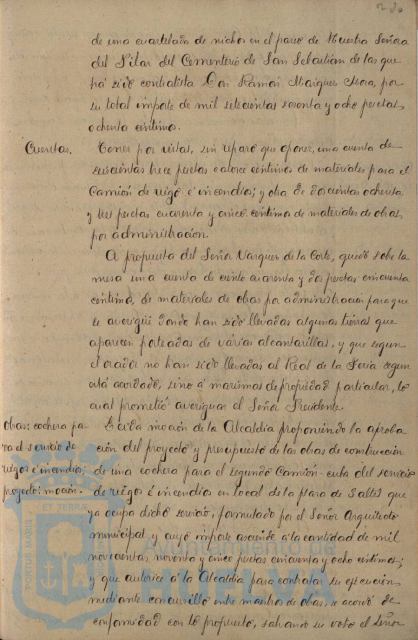 de una cuartelada de nichos en el paseo de Nuestra Señora
del Pilar del Cementerio de San Sebastián de las que
há sido contratista Don Ramón Marquez Mora, por
su total importe de mil setecientas sesenta y ocho pesetas,
ochenta céntimos.
Cuentas.
Tener por vistas, sin reparo que oponer, una cuenta de
seiscientas trece pesetas catorce céntimos de materiales para el
Camión de riego é incendios; y otra de doscientas ochenta
y tres pesetas cuarenta y cinco céntimos de materiales de obras
por administración.
A propuesta del Señor Vazquez de la Corte, quedó sobre la
mesa una cuenta de ciento cuarenta y dos pesetas cincuenta
céntimos, de materiales de obras por administración para que
se averigüe donde han sido llevadas algunas tierras que
aparecen porteadas de várias alcantarillas, y que segun
el orador no han sido llevadas al Real de la Feria segun
está acordado, sino á marismas de propiedad particular, lo
cual prometió averiguar el Señor Presidente.
Obras: cochera pa-
ra el servicio de
riegos é incendios;
proyecto: moción.
Leida moción de la Alcaldía proponiendo la aproba-
ción del proyecto y presupuesto de las obras de construcción
de una cochera para el segundo Camión-cuba del servicio
de riegos é incendios en local de la plaza de Saltés que
ya ocupa dicho servicio, formulado por el Señor Arquitecto
municipal y cuyo importe asciende á la cantidad de mil
novecientas noventa y cinco pesetas cincuenta y ocho céntimos;
y que autorice á la Alcaldía para contratar su ejecución
mediante concursillo entre maestros de obras, se acordó de
conformidad con lo propuesto, salvando su voto el Señor
PORTUS MARIS
ET TERRAE
Ayuntamiento de